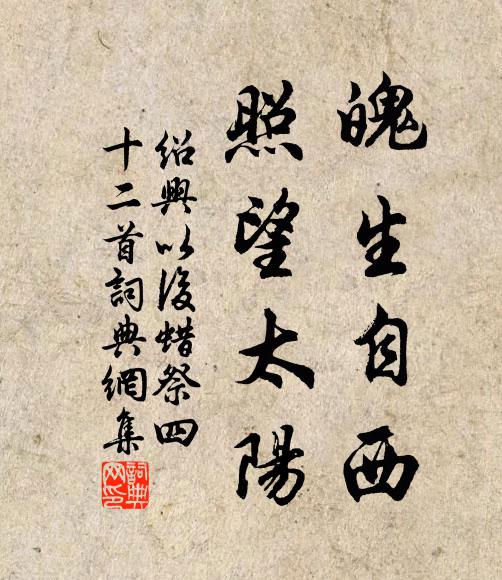 魄生自西
照望太陽
紹興以後蜡祭四
十二首詞典網集
詞典
网印